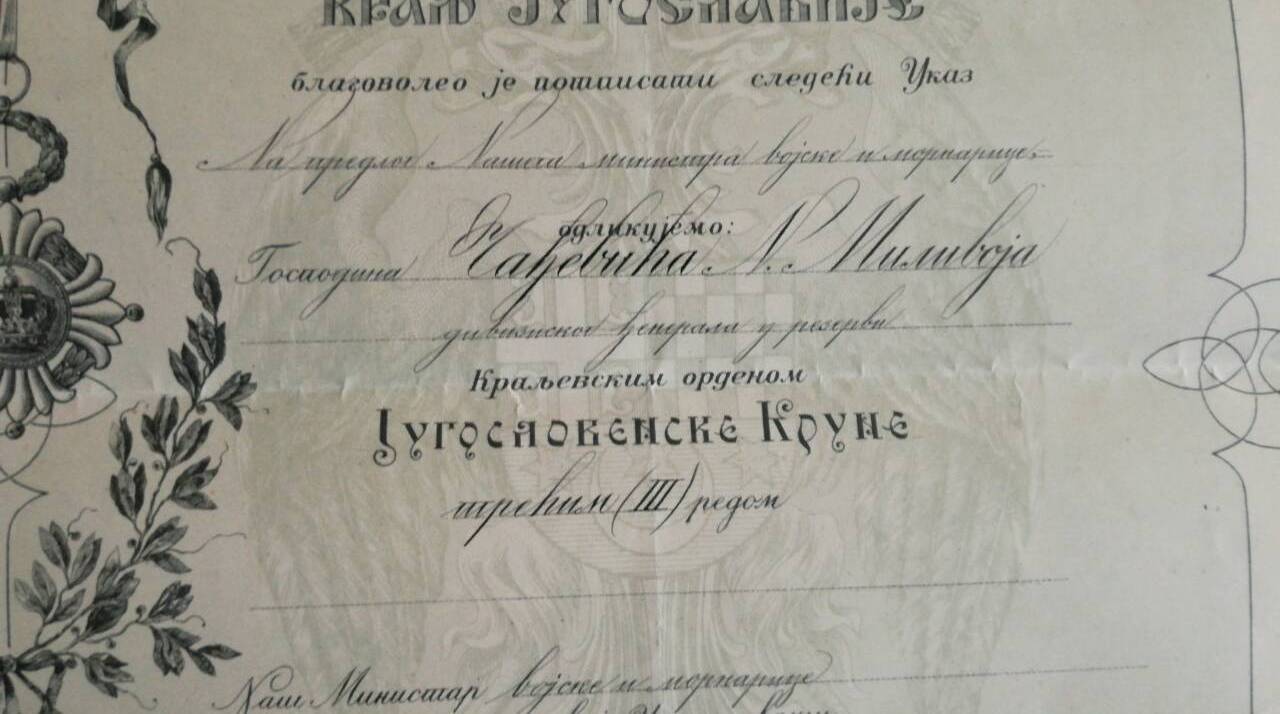 КРАЉ ЈУГОСЛАВИЈЕ
благоволео је потписати следећи Указ
На предлог Нашега министра војске и морнарице,
одликујемо:
Господина N. Миливоја
дивизиског ђенерала у резерви
Краљевским орденом
Југословенске Круне
трећим (III) редом
Наш Министар војске и морнарице